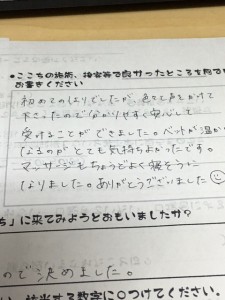 ●ここちの施術、接客等で良かったところを何でも
お書きください
初めてのはりでしたが、色々と声をかけて
下さったので分かりやすく安心して
受けることができました。ベットが温かく
なるのがとても気持ちよかったです。
マッサージもちょうどよく寝そうに
なりました。ありがとうございました
ち」に来てみようとおもいましたか?
ので決めました。
い、該当する数字に○つけてください。